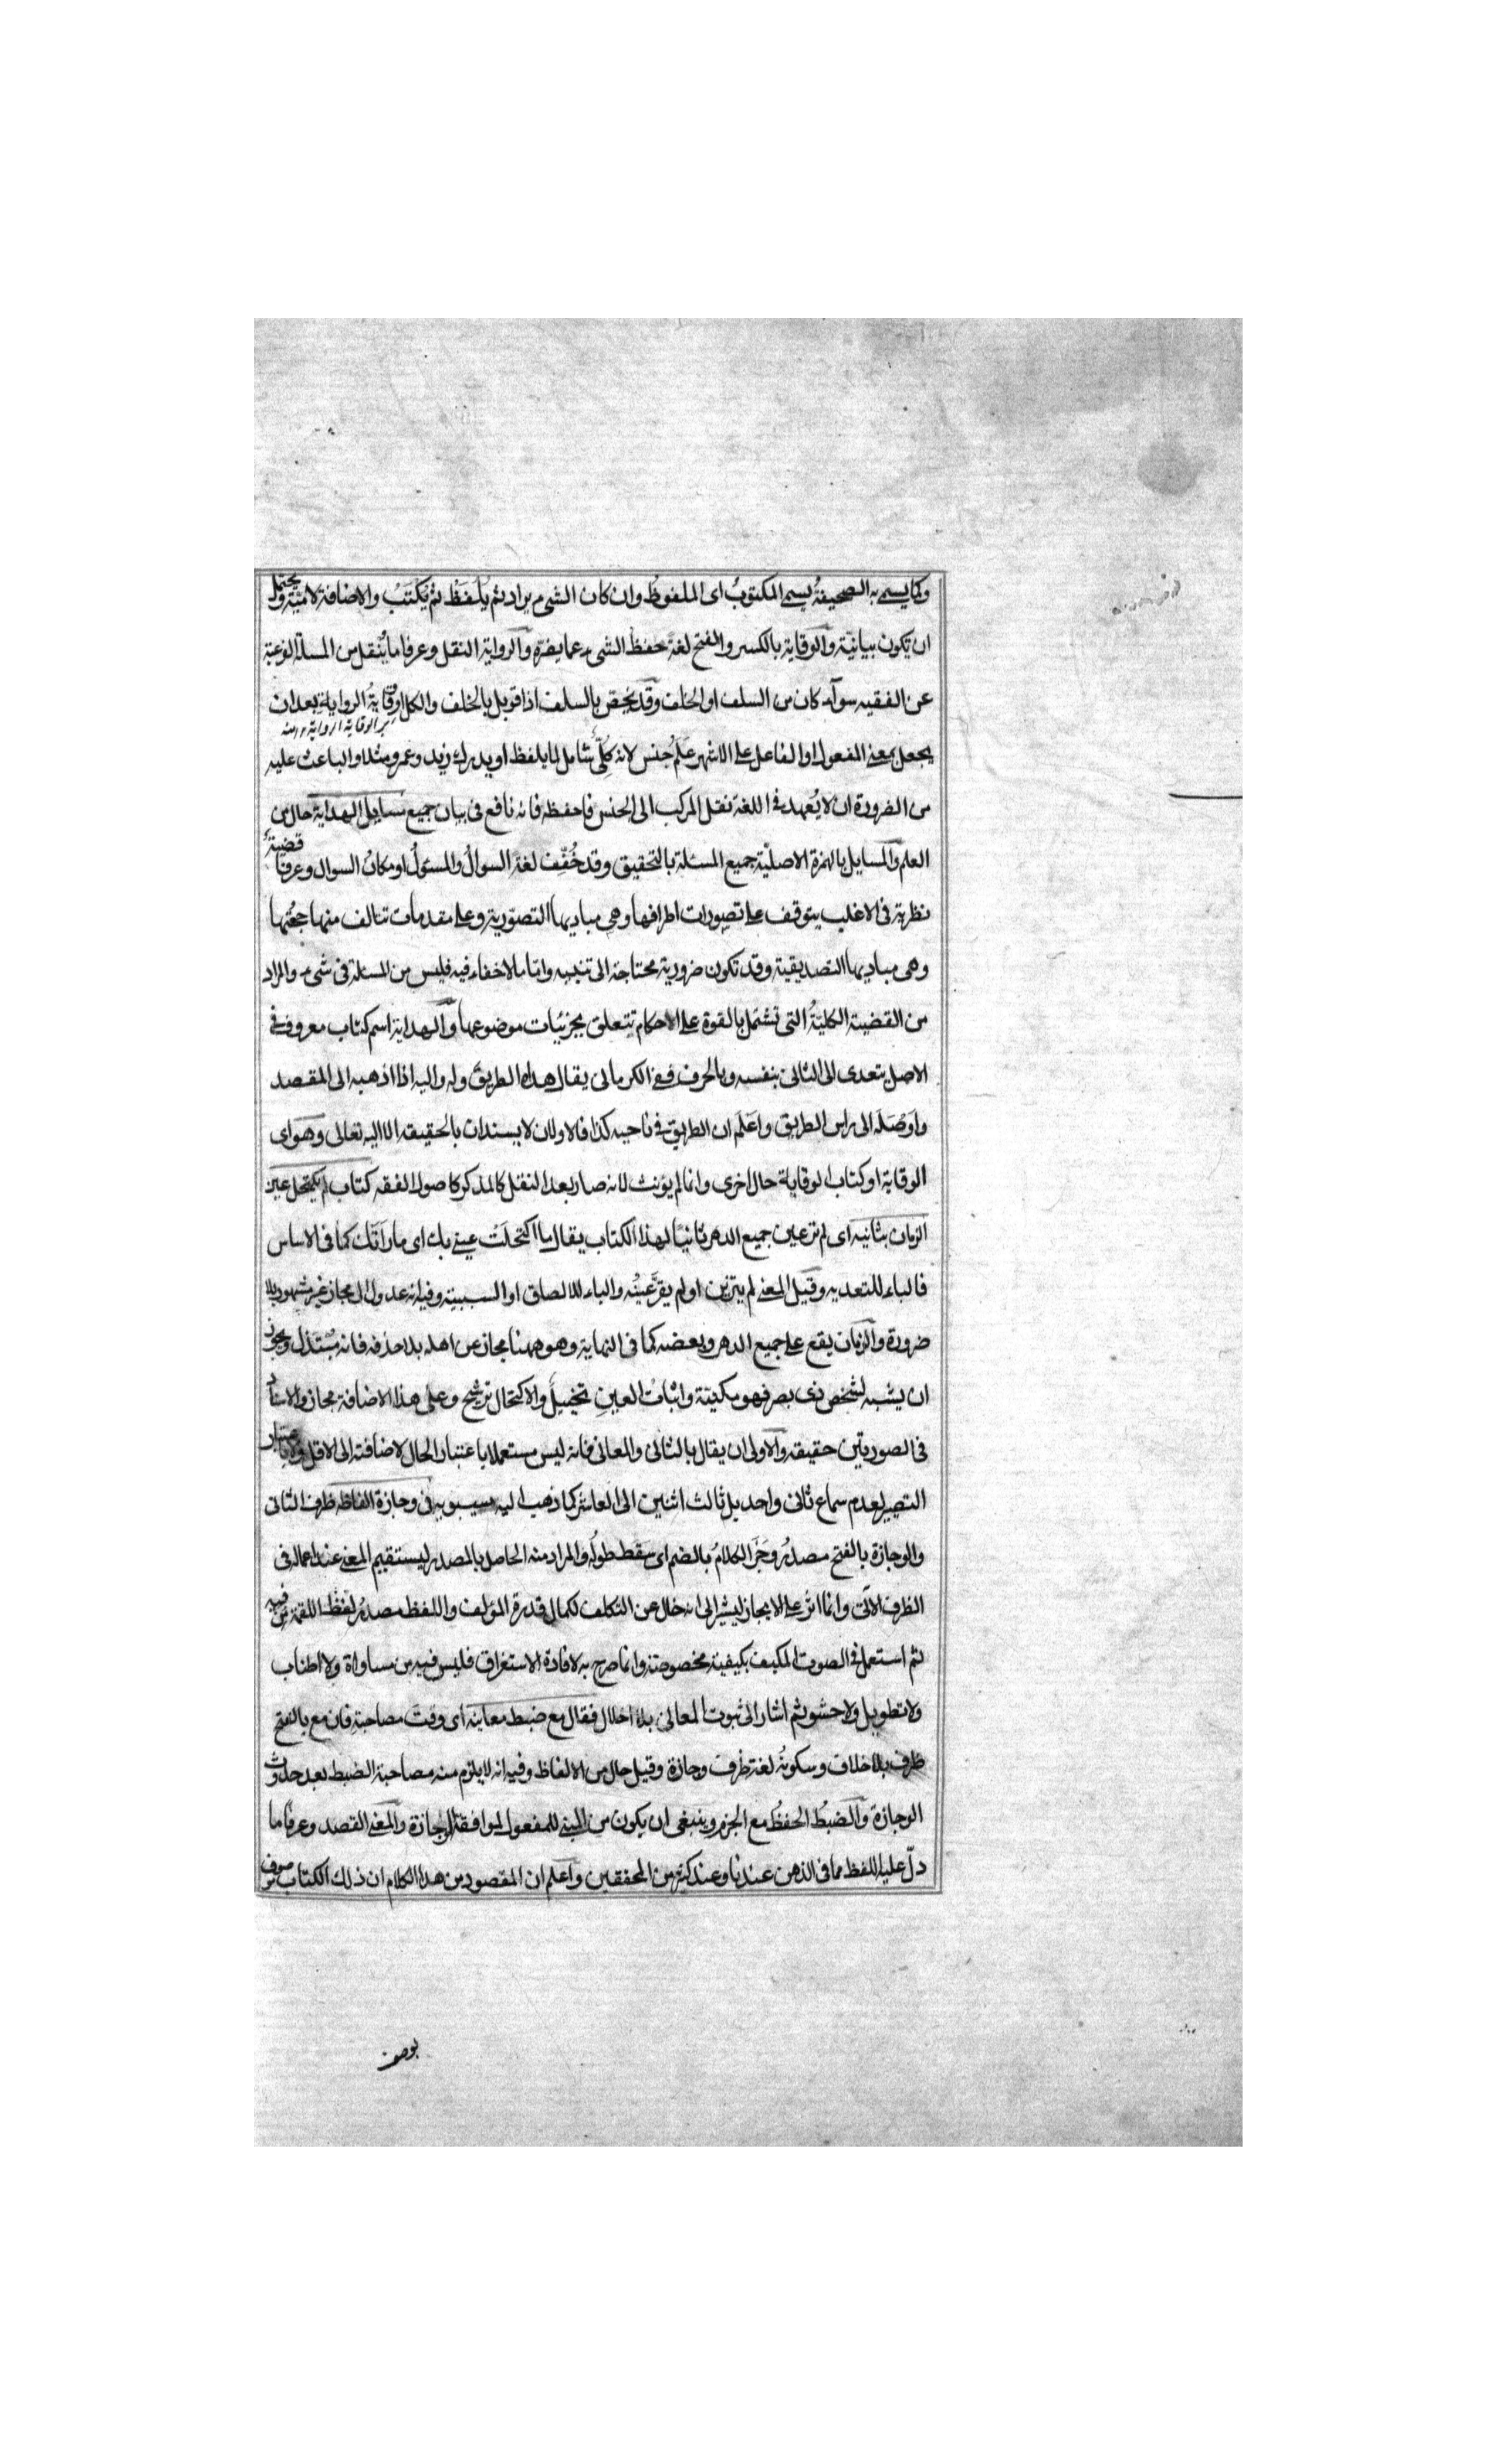 وكما يسمى به الصحيفةُ يسمى المكتوبُ اى الملفوظ وان كان الشىء يراد ثم يُلفَظُ ثم يُكتَبُ والاضافة لاميّة ويحتمل
ان تكون بيانيّة والوقاية بالكسر والفتح لغةً حفظ الشىء عما يضرّه والرواية النقل وعرفا ما يُنقل من المسئلة الفرعية
عن الفقيه سوآء كان من السلف او الخلف وقد يُخصّ بالسلف اذا قوبل بالخلف والكل او وقايةُ الرواية بعد ان
يجعل بمعنى المفعول او الفاعل على الاشهر عَلَمُ جنس لانه كلّىٌّ شامل لما يلفظ او يدرك زيد وعمرو مثلا والباعث عليه
من الضرورة ان لا يُعهد فى اللغة نقل المركب الى الجنس فاحفظه فانه نافع فى بيان جميع مسايل الهداية حال من
العلم والمسايل بالهمزة الاصليّة جميع المسئلة بالتحقيق وقد خُفّف لغة السوالُ والمسئولُ او مكان السوال وعرفا قضيةٌ
نظرية فى الاغلب يتوقف على تصورات اطرافها وهى مباديها التصوّرية وعلى مقدمات تتالف منها حجّتها
وهى مباديها التصديقية وقد تكون ضرورية محتاجة الى تنبيه واما ما لا خفاء فيه فليس من المسئلة فى شىء والمراد
من القضية الكليّةُ التى تشتمل بالقوة على الاحكام تتعلق بجزئيات موضوعها والهداية اسم كتاب معروف فى
الاصل يتعدى الى الثانى بنفسه وبالحرف ففى الكرمانى يقال هداه الطريقَ وله واليه اذا اذهبه الى المقصد
واَوصَلَه الى راس الطريق واَعلَم ان الطريق فى ناحيه كذا فالاولان لا يسندان بالحقيقه الا اليه تعالى وهو اى
الوقاية او كتاب الوقاية حال اخرى وانما لم يؤنث لانه صار بعد النقل كالمذكر كاصول الفقه كتاب لم يكتحل عين
الزمان بثانيه اى لم تر عين جميع الدهر ثانيًا لهذا الكتاب يقال ما اكتحلَت عينى بك اى ما رَاَتك كما فى الاساس
فالباء للتعديه وقيل المعنى لم يتزين او لم يقرّ عينُه والباء للالصاق او السببية وفيه انه عدول الى مجاز غير مشهور بلا
ضرورة والزمان يقع على جميع الدهر وبعضه كما فى النهاية وهو ههنا مجاز عن اهله بلا حذف فانه مبتذل ويجوز
ان يشبه لشخص ذى بصر فهو مكنيّة واثباتُ العينِ تخييلٌ والاكتحال ترشيح وعلى هذا الاضافة مجاز والاسناد
فى الصورتين حقيقه والاولى ان يقال بالثانى والمعانى فانه ليس مستعملا باعتبار الحال لاضافته الى الاقل ولا باعتبار
التصيير لعدم سماع ثانى واحد بل ثالث اثنين الى العاشر كما ذهب اليه سيبويه فى وجازة الفاظه ظرف الثانى
والوجازة بالفتح مصدرُ وَجَزَ الكلامُ بالضم اى سقط طولُه والمراد منه الحاصل بالمصدر ليستقيم المعنى عند اعماله فى
الظرف الآتى وانما اثر على الايجاز ليشير الى انه خال عن التكلف لكمال قدرة المؤلف واللفظ مصدرُ لفَظَ اللقمة من فيه
ثم استعمل فى الصوت المكيف بكيفية مخصوصة وانما صرح به لافادة الاستغراق فليس فيه من مساواة ولا اطناب
ولا تطويل ولا حشو ثم اشار الى ثبوت المعانى بلا اخلال فقال مع ضبط معانيه اى وقتَ مصاحبةٍ فان مع بالفتح
ظرف بلا خلاف وسكونُه لغة ظرف وجازة وقيل حال من الالفاظ وفيه انه لا يلزم منه مصاحبة الضبط بعد حدوث
الوجازة والضبطُ الحفظُ مع الجزم وينبغى ان يكون من المبنى للمفعول لموافقة الوجازة والمعنى القصد وعرفًا ما
دلّ عليه اللفظ مما فى الذهن عندنا وعند كثير من المحققين واعلم ان المقصود من هذا الكلام ان ذلك الكتاب موصوف
بوصف